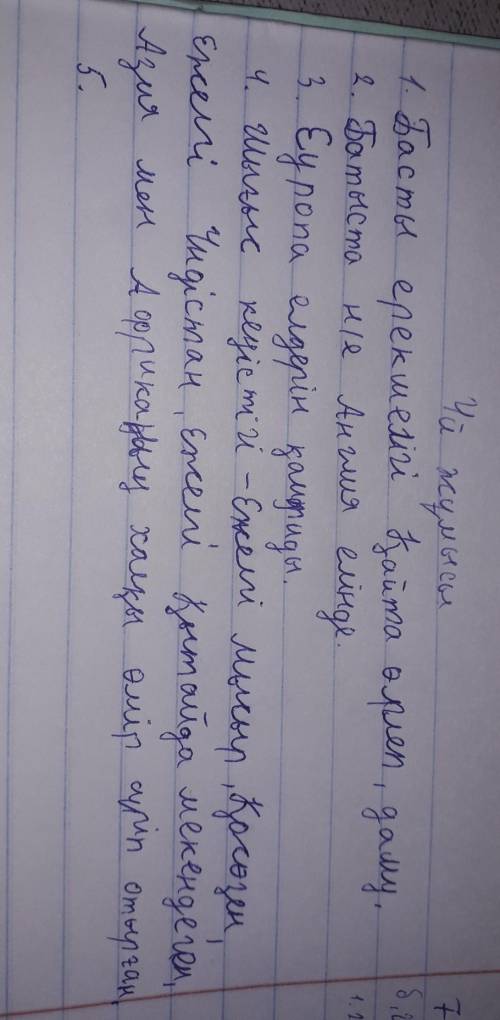 Үй жұмысы
1. Басты ерекшелігі Қайта өрлеп, даму,
2. Батыста н/е Англия елінде.
3. Еуропа елдерін қамтиды.
4. Шығыс кеңістігі - Ежелгі мысыр, Қосөзен,
Ежелгі Үндістан, Ежелгі Қытайда мекендеген,
Азия мен Африканың халқы өмір сүріп отырған,
5.
7